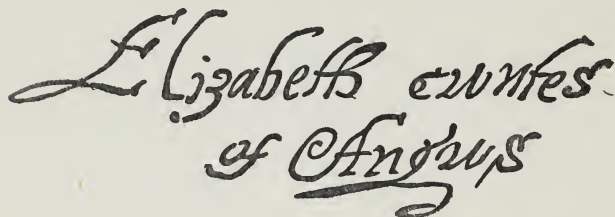 Elizabeth cuntes
of Angws